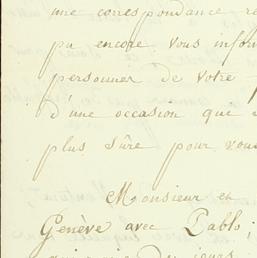 une correspondance re
pu encore vous infor
personnes de votre
d'une occasion qui
plus sûre pour vous
Monsieur et
Genève avec Pablo;
jours